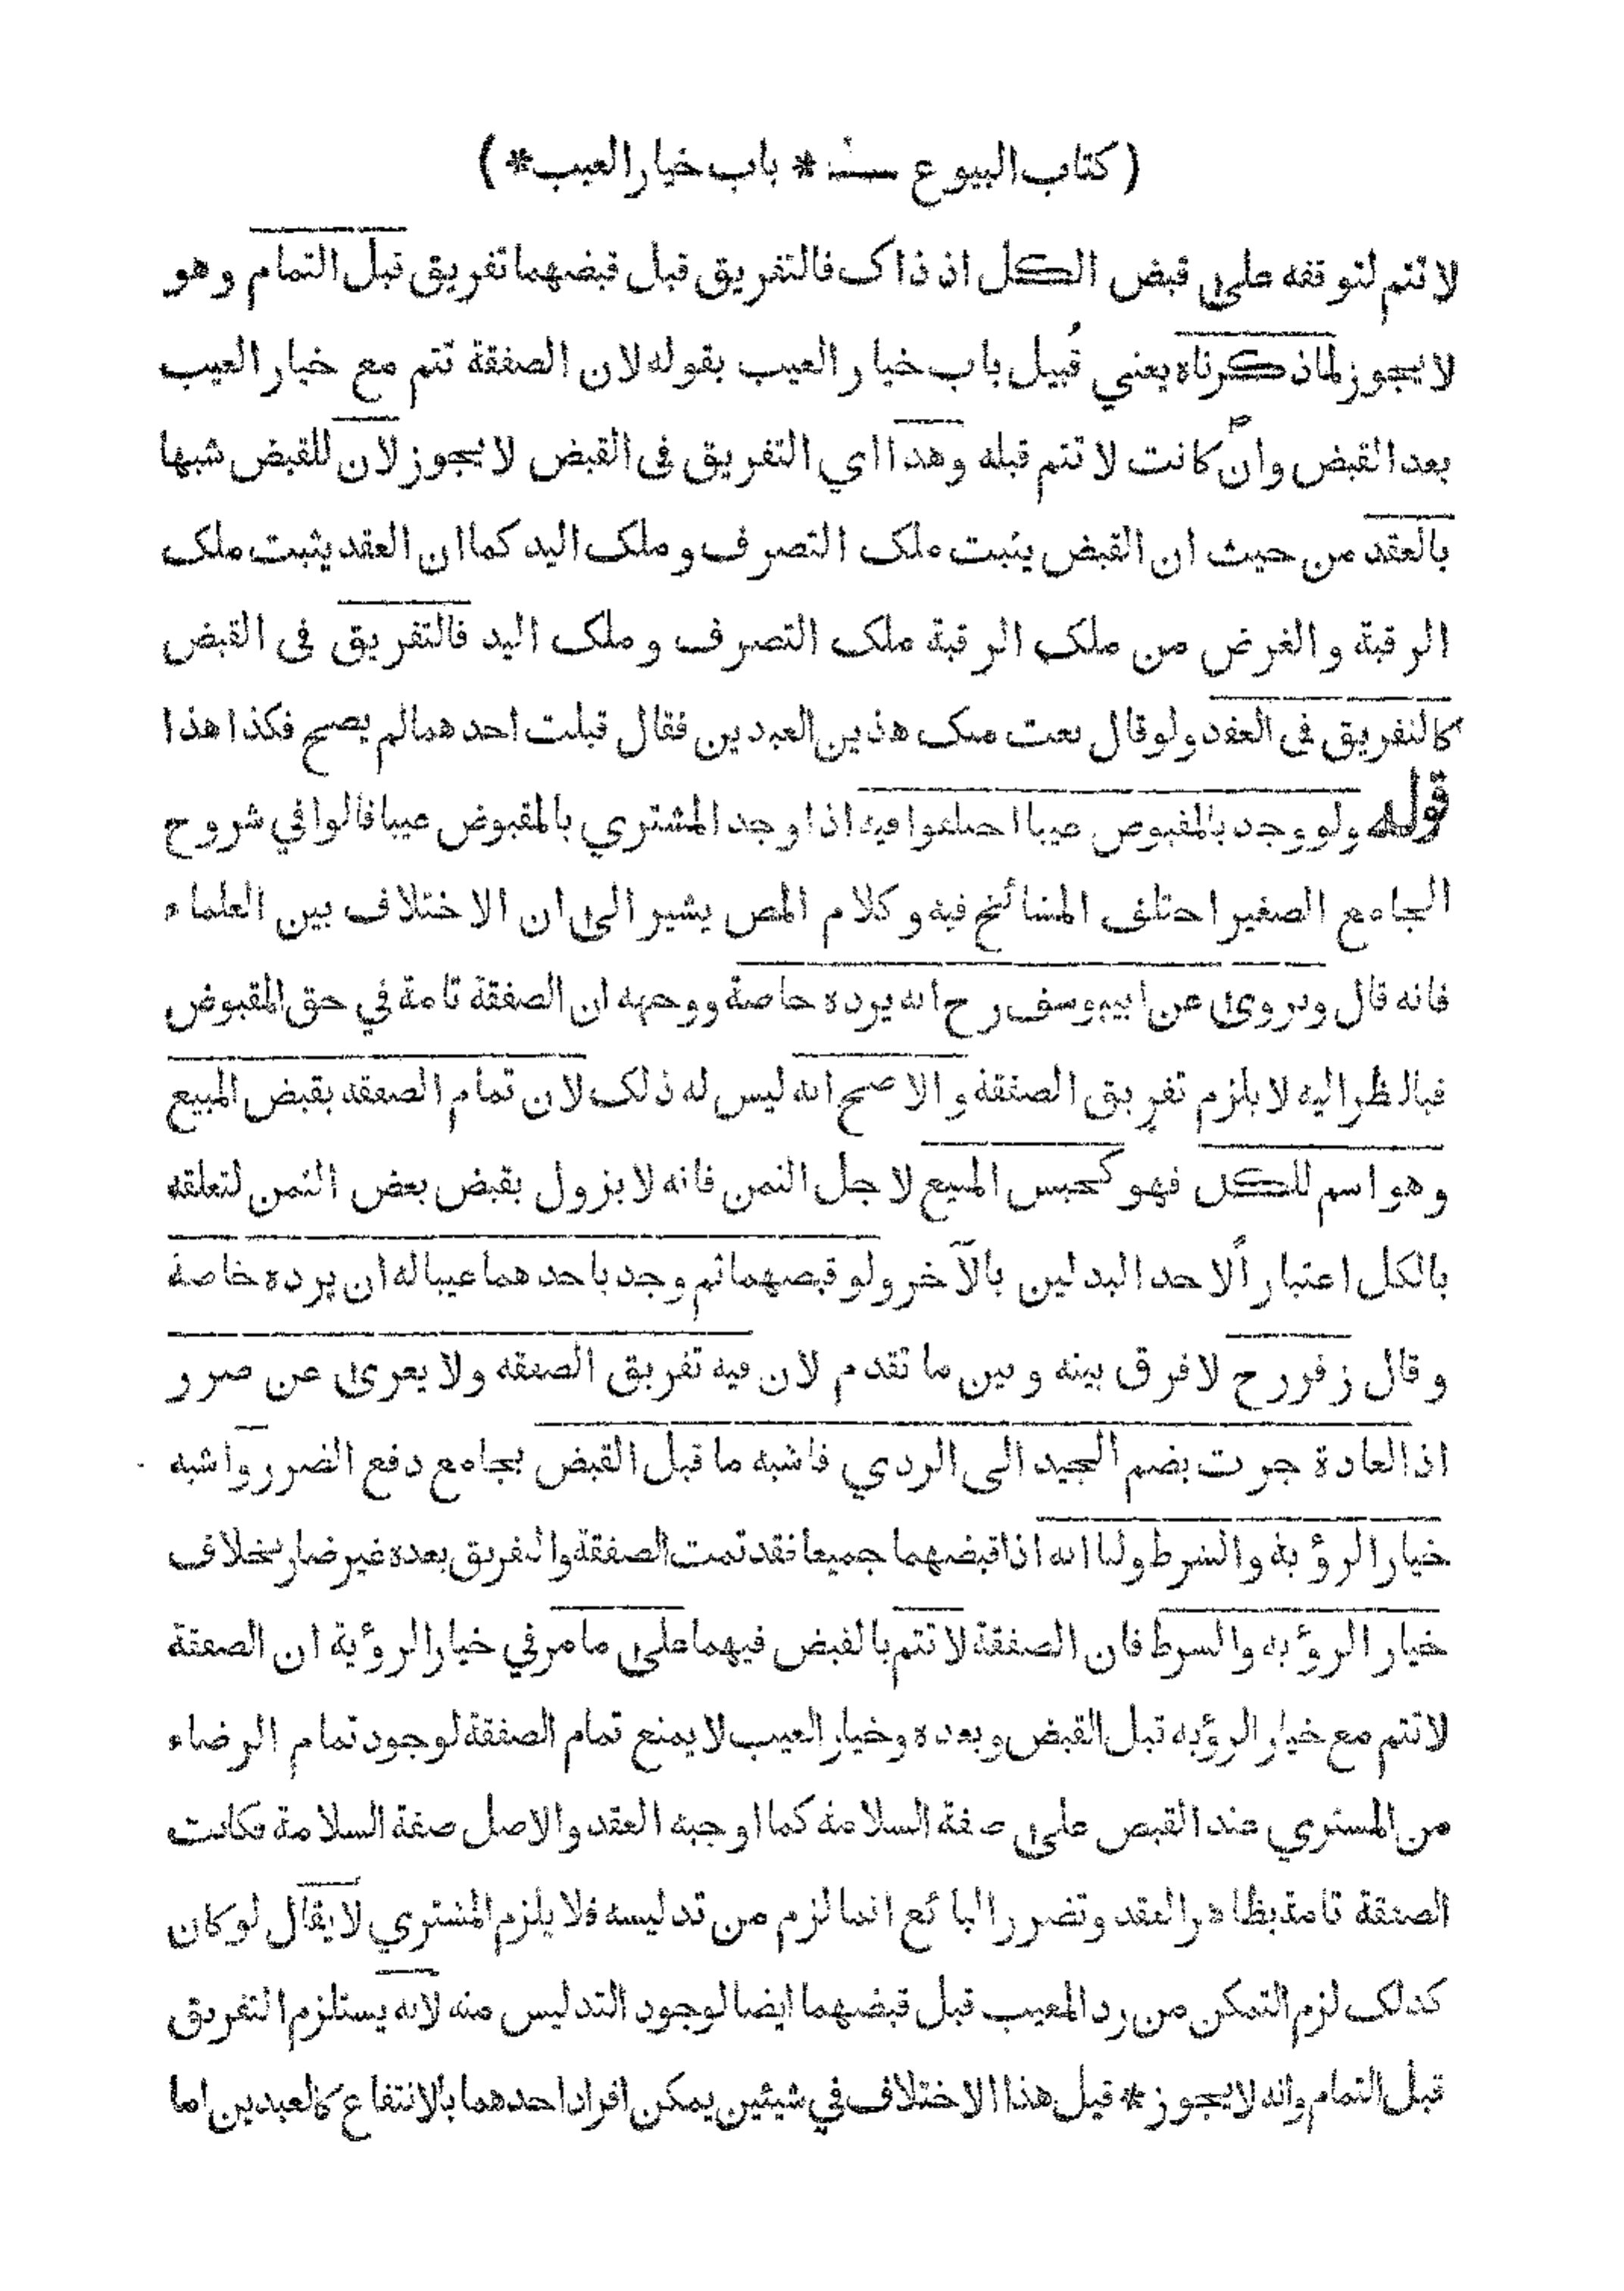 ( كتاب البيوع ـــــــ * باب خيار العيب * )
لا تتم لتوقفه على قبض الكل اذ ذاك فالتفريق قبل قبضهما تفريق قبل التمام وهو
لا يجوز لما ذكرناه يعني قُبيل باب خيار العيب بقوله لان الصفقة تتم مع خيار العيب
بعد القبض وان كانت لا تتم قبله وهذا اي التفريق في القبض لا يجوز لان للقبض شبها
بالعقد من حيث ان القبض يثبت ملك التصرف وملك اليد كما ان العقد يثبت ملك
الرقبة والغرض من ملك الرقبة ملك التصرف وملك اليد فالتفريق في القبض
كالتفريق في العقد ولو قال بعت منك هذين العبدين فقال قبلت احدهما لم يصح فكذا هذا
قوله ولو وجد بالمقبوض عيبا اختلفوا فيه اذا وجد المشتري بالمقبوض عيبا قالوا في شروح
الجامع الصغير اختلف المشائخ فيه وكلام المص يشير الى ان الاختلاف بين العلماء
فانه قال ويروى عن ابييوسف رح انه يرده خاصة ووجهه ان الصفقة تامة في حق المقبوض
فبالنظر اليه لا يلزم تفريق الصفقة والاصح انه ليس له ذلك لان تمام الصفقة بقبض المبيع
وهو اسم للكل فهو كحبس المبيع لاجل الثمن فانه لا يزول بقبض بعض الثمن لتعلقه
بالكل اعتباراً لاحد البدلين بالآخر ولو قبضهما ثم وجد باحدهما عيبا له ان يرده خاصة
وقال زفر رح لا فرق بينه وبين ما تقدم لان فيه تفريق الصفقة ولا يعرى عن ضرر
اذ العادة جرت بضم الجيد الى الردي فاشبه ما قبل القبض بجامع دفع الضرر واشبه
خيار الرؤية والشرط ولنا انه اذا قبضهما جميعا فقد تمت الصفقة والتفريق بعده غير ضار بخلاف
خيار الرؤية والشرط فان الصفقة لا تتم بالقبض فيهما على ما مر في خيار الرؤية ان الصفقة
لا تتم مع خيار الرؤية قبل القبض وبعده وخيار العيب لا يمنع تمام الصفقة لوجود تمام الرضاء
من المشتري عند القبض على صفة السلامة كما اوجبه العقد والاصل صفة السلامة فكانت
الصفقة تامة بظاهر العقد وتضرر البائع انما لزم من تدليسه فلا يلزم المشتري لا يقال لو كان
كذلك لزم التمكن من رد المعيب قبل قبضهما ايضا لوجود التدليس منه لانه يستلزم التفريق
قبل التمام وانه لا يجوز * قيل هذا الاختلاف في شيئين يمكن افراد احدهما بالانتفاع كالعبدين اما